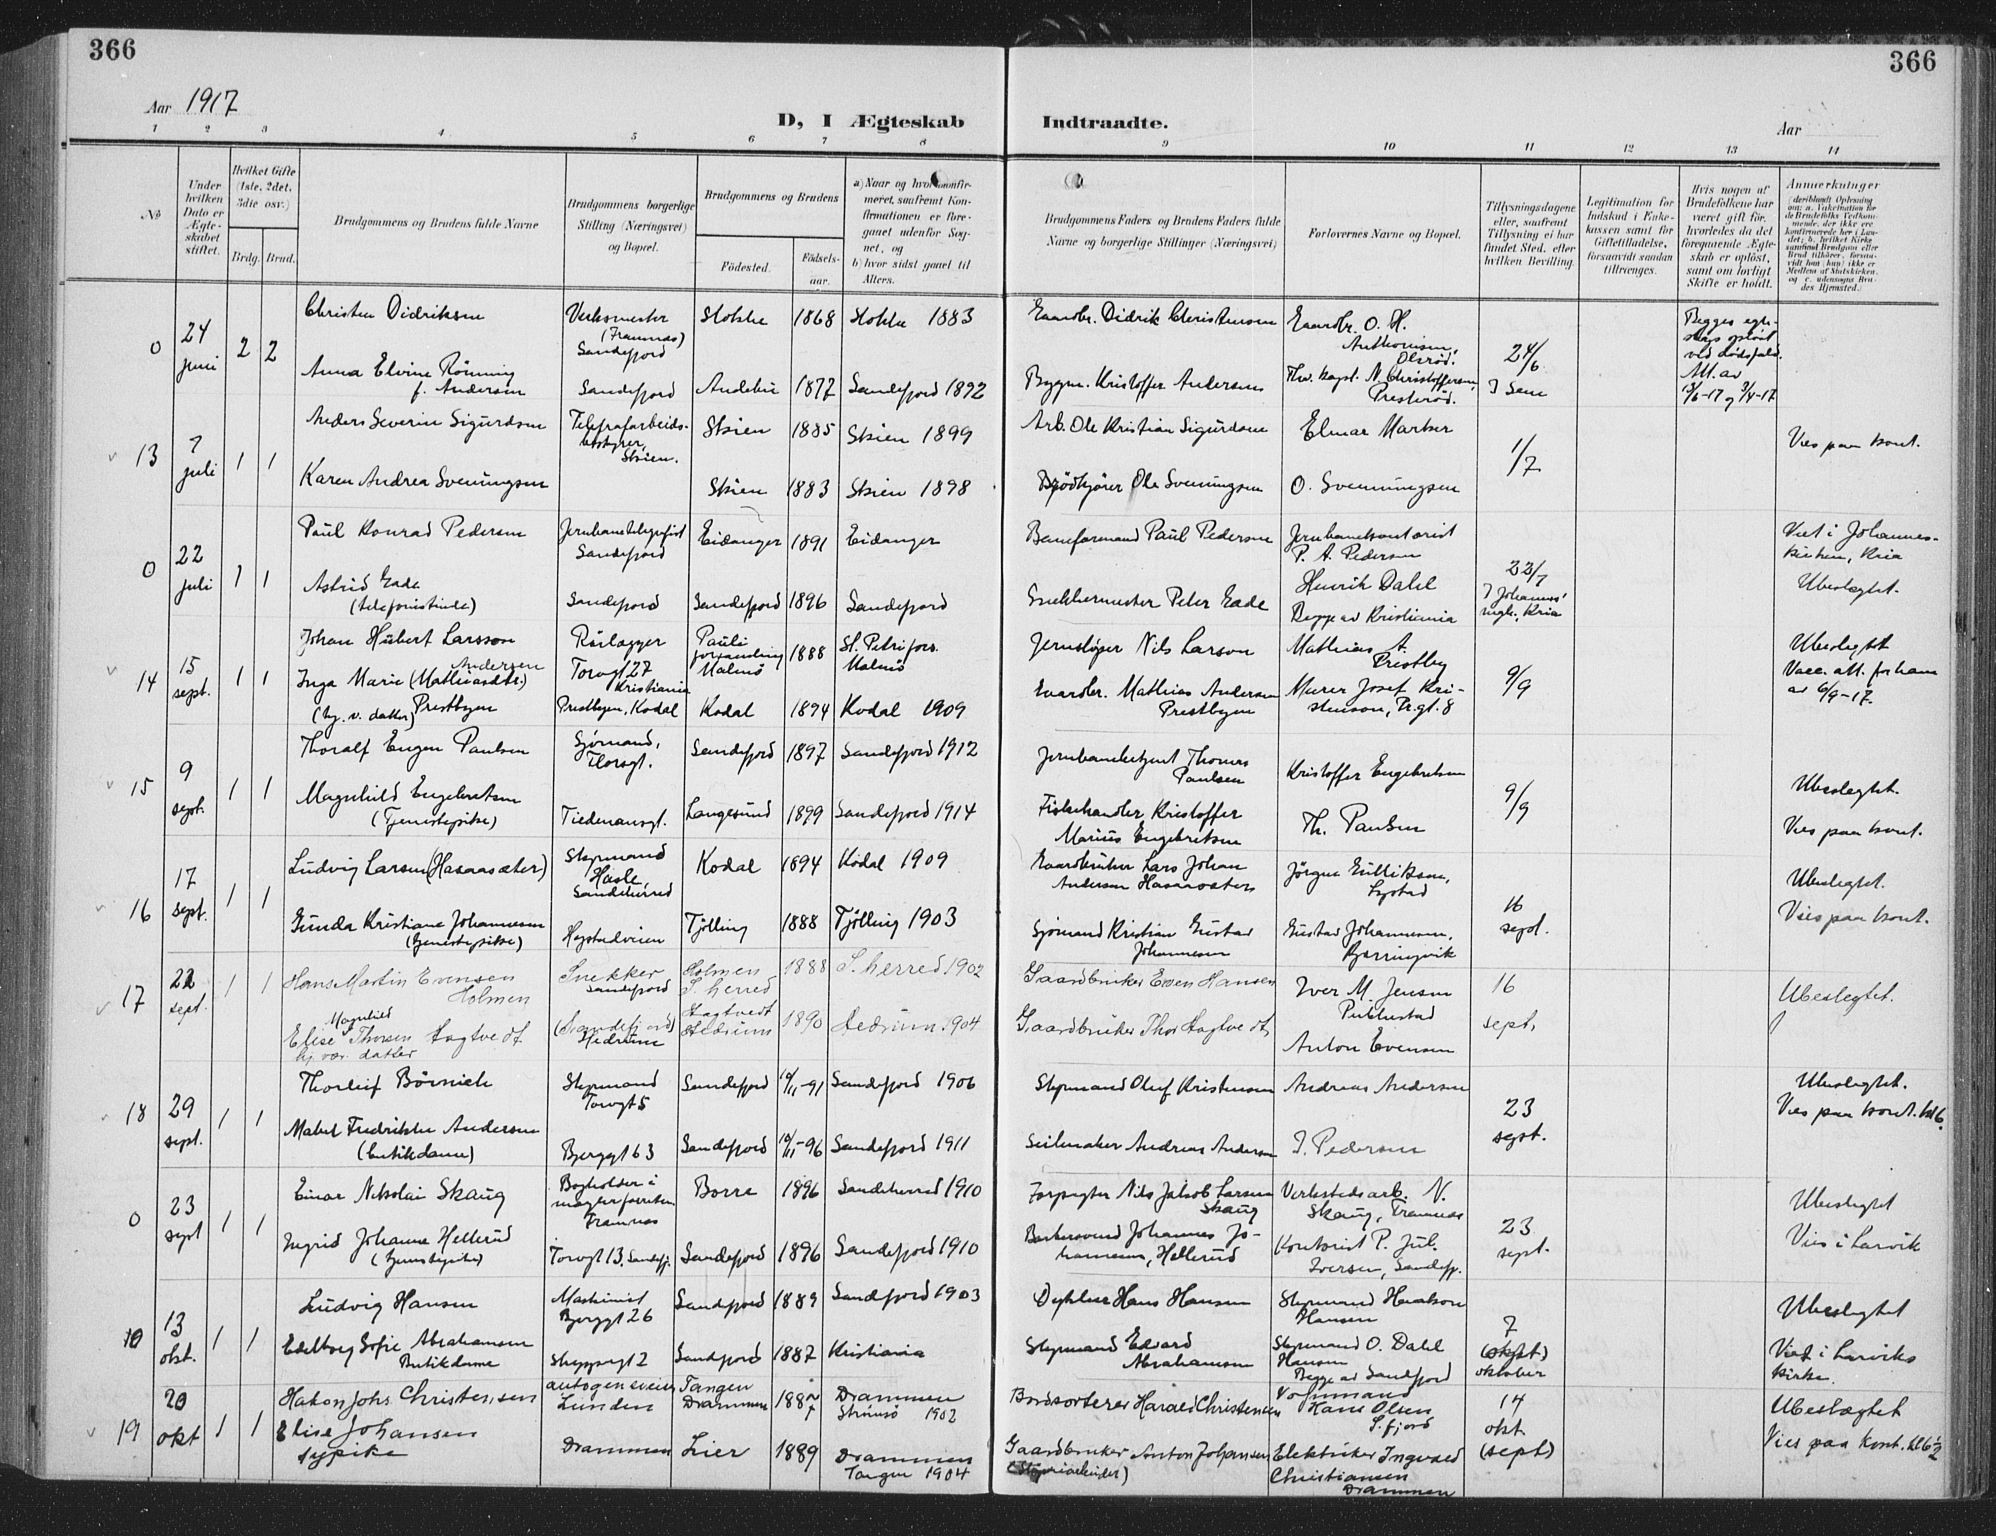 366
366
Aar 1917
D, I Ægteskab Indtraadte.
Aar
1 2 3 4 5 6 7 8 9 10 11 12 13 14
No
Under hvilken Dato er Ægteskabet stiftet.
Hvilket Gifte (1ste, 2det, 3die osv.)
Brdg. Brud.
Brudgommens og Brudens fulde Navne
Brudgommens borgerlige Stilling (Næringsvei) og Bopæl.
Brudgommens og Brudens
Fødested.
Fødselsaar.
a) Naar og hvor konfirmeret, saafremt Konfirmationen er foregaaet udenfor Sognet, og
b) hvor sidst gaaet til Alters.
Brudgommens Faders og Brudens Faders fulde Navne og borgerlige Stillinger (Næringsvei)
Forlovernes Navne og Bopæl.
Tillysningsdagene eller, saafremt Tillysning ei har fundet Sted, efter hvilken Bevilling.
Legitimation for Indskud i Enkekassen samt for Giftetilladelse, forsaavidt saadan tiltrænges.
Hvis nogen af Brudefolkene har været gift før, hvorledes da det foregaaende Ægteskab er opløst, samt om lovligt Skifte er holdt.
Anmerkninger
0 24 juni 2 2
Christen Didriksen
Verksmester (Framnæs) Sandefjord
Stokke 1868 Stokke 1883
Gaardbr. Didrik Christensen
Gaardbr. O. H. Anthonisen, Olsrød.
24/6
Anna Elvine Rönning f. Andersen
Sandefjord Andebu 1877 Sandefjord 1892
Bygm. Kristoffer Andersen
N. Christoffersen, Presterød.
I Sem
Begges egteskap opløst ved dødsfald. Att. av
13 7 juli 1 1
Anders Severin Sigurdsen
Skien.
Skien 1885 Skien 1899
Arb. Ole Kristian Sigurdsen
Elmar Marker
1/7
Vies paa kont.
Karen Andrea Svenningsen
Skien 1883 Skien 1898
Ole Svenningsen
O. Svenningsen
0 22 juli 1 1
Paul Konrad Pedersen
Jernbanetelegrafist Sandefjord
Eidanger 1891 Eidanger
Baneformand Paul Pedersen
Jernbanekontorist P. A. Pedersen
22/7
Viet i Johanneskirken, Kria
Astrid Gade
(telefonistinde)
Sandefjord Sandefjord 1896 Sandefjord
Snekkermester Peter Gade
Henrik Dahl
Begge av Kristiania
I Johannes' mgh., Kria
Ubeslegtet.
14 15 sept. 1 1
Johan Hubert Larsson
Rørlægger Torvgt 27 Kristiania
Pauli forsamling Malmö 1888 St. Petri fors. Malmö
Jernsløper Nils Larson
Mathias A. Prestby
9/9
Ubeslegtet
Vacc. att. for ham av 6/9-17.
Inga Marie (Mathiasdtr.) Andersen Prestbyen
(hj. v. datter)
Prestbyen, Kodal Kodal 1894 Kodal 1909
Gaardbr. Mathias Andersen Prestbyen
Murer Josef Kristenson, Pr.gt. 8
15 9 sept. 1 1
Thoralf Eugen Paulsen
Sjømand, Thorsgt.
Sandefjord 1897 Sandefjord 1912
Jernbanebetjent Thomas Paulsen
Kristoffer Engebretsen
9/9
Ubeslegtet.
Magnhild Engebretsen
(Tjenestepike)
Tiedemansgt. Langesund 1899 Sandefjord 1914
Fiskehandler Kristoffer Marius Engebretsen
Th. Paulsen
Vies paa kont.
16 17 sept. 1 1
Ludvig Larsen (Hasaasæter)
Styrmand Hasle, Sandeherred
Kodal 1894 Kodal 1909
Gaardbruker Lars Johan Andersen Hasaasæter
Jörgen Gulliksen, Lystad
16 sept.
Ubeslegtet.
Gunda Kristiane Johannesen
(tjenestepike)
Hystadveien Tjölling 1888 Tjölling 1903
Sjømand Kristian Gustav Johannesen
Gustav Johannesen, Bjerringvik
Vies paa kont.
17 22 sept. 1 1
Hans Martin Evensen Holmen
Snekker Sandefjord
Holmen S. herred 1888 S. herred 1902
Gaardbruker Even Hansen
Iver M. Jensen
16 sept.
Ubeslegtet.
Elise Magnhild Thorsen Hagtvedt
hj. vær. datter
(Sandefjord) Hedrum
Hagtvedt Hedrum 1890 Hedrum 1904
Gaardbruker Thor Hagtvedt
Anton Evensen
18 29 sept. 1 1
Thorleif Börnich
Styrmand Torvgt 5
Sandefjord 10/11-91 Sandefjord 1906
Styrmand Oluf Kristensen
Andreas Andersen
23 sept.
Ubeslegtet.
Vies paa kont. kl 6.
Mabel Fredrikke Andersen
(butikdame)
Bjerggt 63 Sandefjord 10/11-96 Sandefjord 1911
Seilmaker Andreas Andersen
I. Pedersen
0 23 sept 1 1
Einar Nikolai Skaug
Bogholder i Framnæs
Borre 1896 Sandeherred 1910
Forpagter Nils Jakob Larsen Skaug
Verkstedsarb. N. Skaug, Framnæs
23 sept.
Ubeslegtet
Ingrid Johanne Hellerud
(tjenestepike)
Torvgt 13, Sandefj. Sandefjord 1896 Sandefjord 1910
Johannes Johannesen, Hellerud
Kontorist P. Jul. Iversen, Sandefj.
Vies i Larvik
10 13 okt. 1 1
Ludvig Hansen
Maskinist Bjerggt 26
Sandefjord 1889 Sandefjord 1903
Dykker Hans Hansen
Styrmand Haakon Hansen
7 (sept) oktober
Ubeslegtet
Edelborg Sofie Abrahamsen
Butikdame
Skippergt 2 Sandefjord 1887 Kristiania
Styrmand Edvard Abrahamsen
Styrmand O. Dahl Hansen
Begge av Sandefjord
Viet i Larviks kirke.
19 20 okt 1 1
Hakon Johs Christensen
autogensveiser Lunden
Tangen Drammen 1887 Drammen Strömsö 1902
Bordsorterer Harald Christensen
Formmand Hans Olsen S.fjord
14 okt (sept)
Ubeslægtet
Elise Johansen
sypike
Drammen Lier 1889 Drammen Tangen 1904
Gaardbruker Anton Johansen
Elektriker Ingvald Christiansen Drammen
Vies paa kont. kl 6 1/2